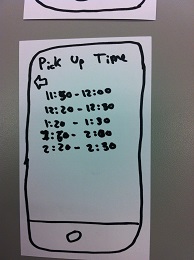 Pick Up Time
11:50 - 12:00
12:20 - 12:30
1:20 - 1:30
2:20 - 2:30